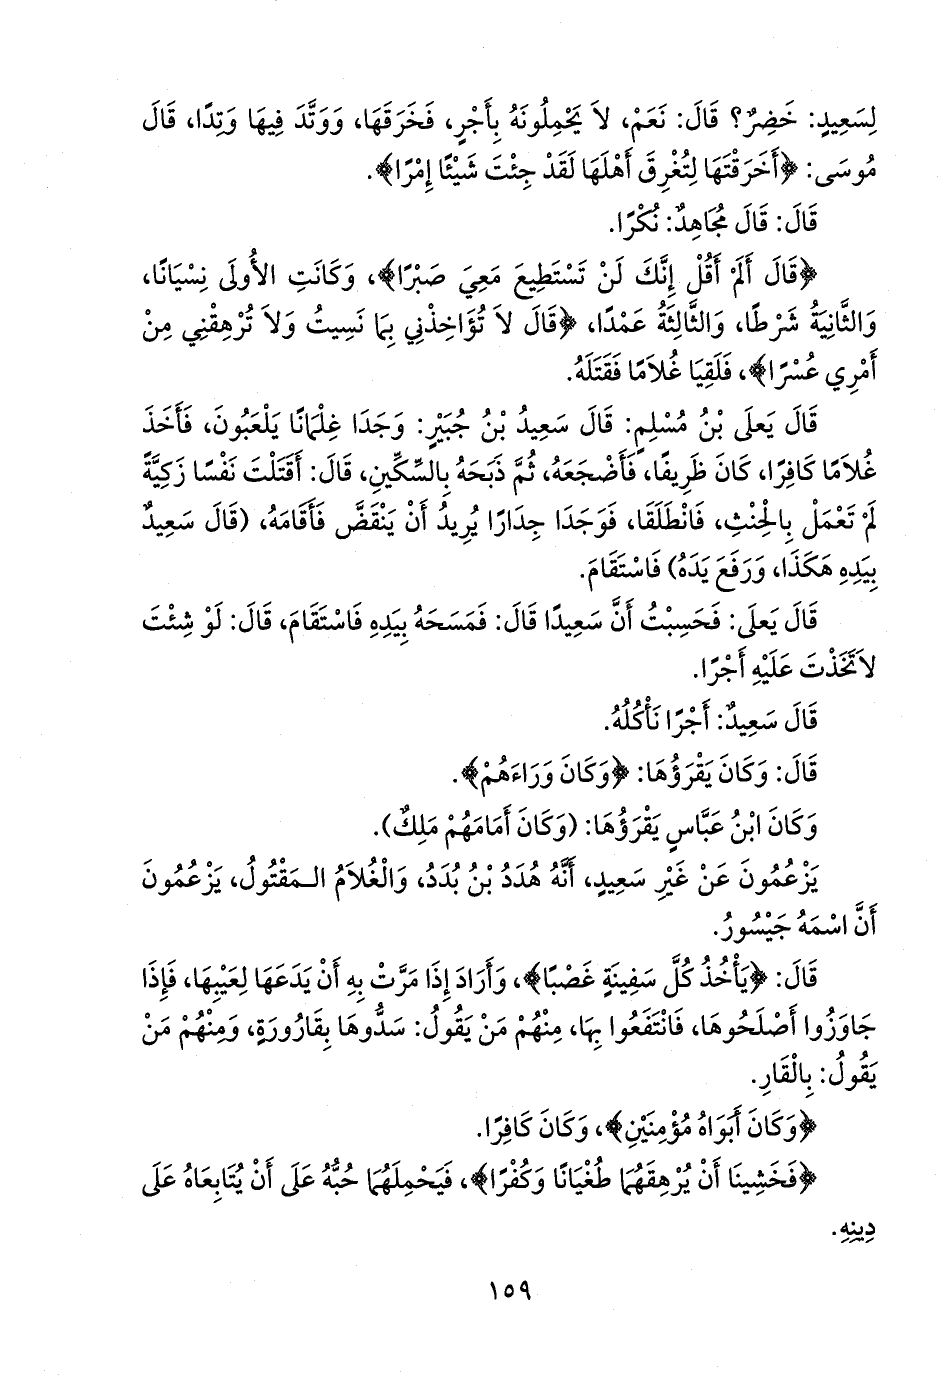 لِسَعِيدٍ: خَضِرٌ؟ قَالَ: نَعَمْ، لاَ يَحْمِلُونَهُ بِأَجْرٍ، فَخَرَقَهَا، وَوَتَّدَ فِيهَا وَتِدًا، قَالَ
مُوسَى: ﴿أَخَرَقْتَهَا لِتُغْرِقَ أَهْلَهَا لَقَدْ جِئْتَ شَيْئًا إِمْرًا﴾.
قَالَ: قَالَ مُجَاهِدٌ: نُكْرًا.
﴿قَالَ أَلَمْ أَقُلْ إِنَّكَ لَنْ تَسْتَطِيعَ مَعِيَ صَبْرًا﴾، وَكَانَتِ الأُولَى نِسْيَانًا،
وَالثَّانِيَةُ شَرْطًا، وَالثَّالِثَةُ عَمْدًا، ﴿قَالَ لاَ تُؤَاخِذْنِي بِمَا نَسِيتُ وَلاَ تُرْهِقْنِي مِنْ
أَمْرِي عُسْرًا﴾، فَلَقِيَا غُلاَمًا فَقَتَلَهُ.
قَالَ يَعلَى بْنُ مُسْلِمٍ: قَالَ سَعِيدُ بْنُ جُبَيْرٍ: وَجَدَا غِلْمَانًا يَلْعَبُونَ، فَأَخَذَ
غُلاَمًا كَافِرًا، كَانَ ظَرِيفًا، فَأَضْجَعَهُ، ثُمَّ ذَبَحَهُ بِالسِّكِّينِ، قَالَ: أَقَتَلْتَ نَفْسًا زَكِيَّةً
لَمْ تَعْمَلْ بِالْحِنْثِ، فَانْطَلَقَا، فَوَجَدَا جِدَارًا يُرِيدُ أَنْ يَنْقَضَّ فَأَقَامَهُ، (قَالَ سَعِيدٌ
بِيَدِهِ هَكَذَا، وَرَفَعَ يَدَهُ) فَاسْتَقَامَ.
قَالَ يَعلَى: فَحَسِبْتُ أَنَّ سَعِيدًا قَالَ: فَمَسَحَهُ بِيَدِهِ فَاسْتَقَامَ، قَالَ: لَوْ شِئْتَ
لاَتَّخَذْتَ عَلَيْهِ أَجْرًا.
قَالَ سَعِيدٌ: أَجْرًا نَأْكُلُهُ.
قَالَ: وَكَانَ يَقْرَؤُهَا: ﴿وَكَانَ وَرَاءَهُمْ﴾.
وَكَانَ ابْنُ عَبَّاسٍ يَقْرَؤُهَا: (وَكَانَ أَمَامَهُمْ مَلِكٌ).
يَزْعُمُونَ عَنْ غَيْرِ سَعِيدٍ، أَنَّهُ هُدَدُ بْنُ بُدَدُ، وَالْغُلاَمُ الـمَقْتُولُ، يَزْعُمُونَ
أَنَّ اسْمَهُ جَيْسُورُ.
قَالَ: ﴿يَأْخُذُ كُلَّ سَفِينَةٍ غَصْبًا﴾، وَأَرَادَ إِذَا مَرَّتْ بِهِ أَنْ يَدَعَهَا لِعَيْبِهَا، فَإِذَا
جَاوَزُوا أَصْلَحُوهَا، فَانْتَفَعُوا بِهَا، مِنْهُمْ مَنْ يَقُولُ: سَدُّوهَا بِقَارُورَةٍ، وَمِنْهُمْ مَنْ
يَقُولُ: بِالْقَارِ.
﴿وَكَانَ أَبَوَاهُ مُؤْمِنَيْنِ﴾، وَكَانَ كَافِرًا.
﴿فَخَشِينَا أَنْ يُرْهِقَهُمَا طُغْيَانًا وَكُفْرًا﴾، فَيَحْمِلَهُمَا حُبُّهُ عَلَى أَنْ يُتَابِعَاهُ عَلَى
دِينِهِ.
١٥٩